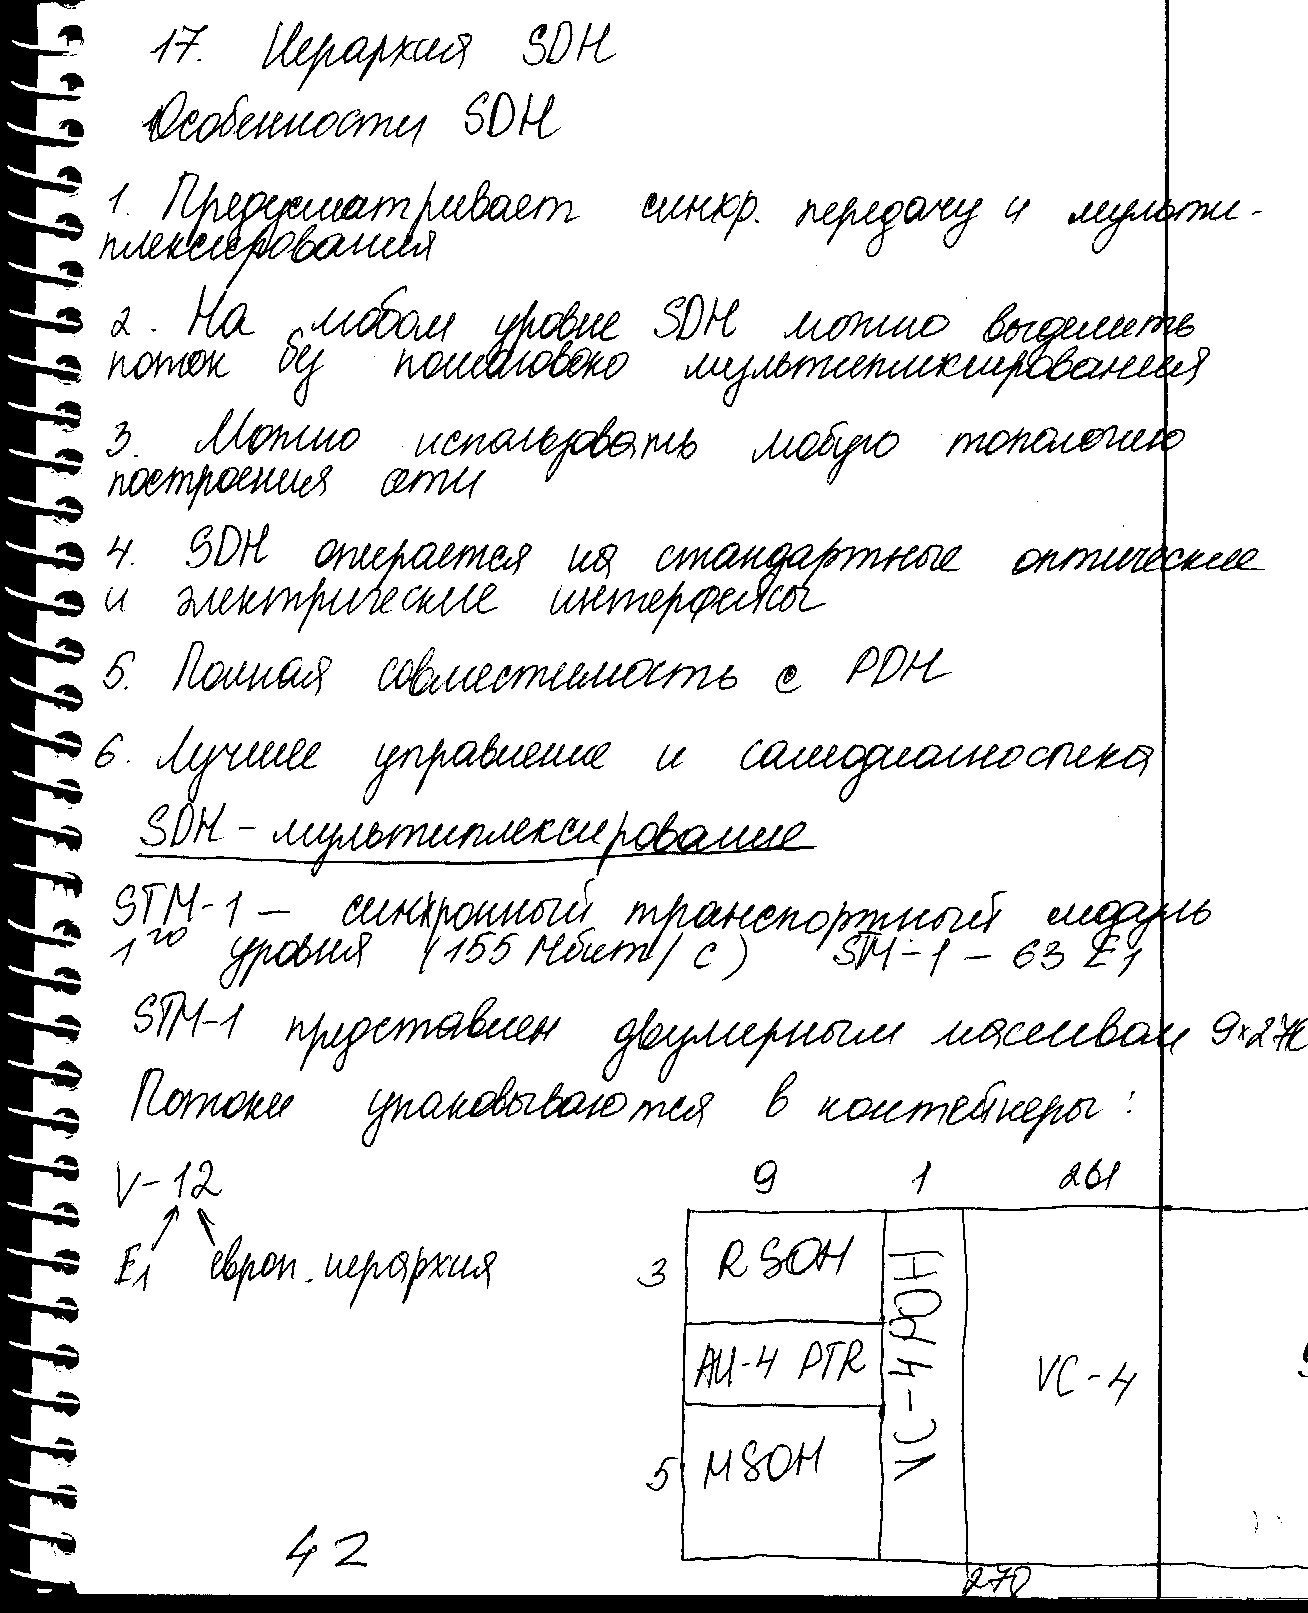 17. Иерархия SDH
Особенности SDH
1. Предусматривает синхр. передачу и мульти-
плексирования
2. На любом уровне SDH можно выделить
поток без пошагового мультиплексирования
3. Можно использовать любую топологию
построения сети
4. SDH опирается на стандартные оптические
и электрические интерфейсы
5. Полная совместимость с PDH
6. Лучшее управление и самодиагностика
SDH - мультиплексирование
STM-1 — синхронный транспортный модуль
1го уровня (155 Мбит/с) STM-1 – 63 E1
STM-1 представлен двумерным массивом 9×270
Потоки упаковываются в контейнеры:
V-12
E1 европ. иерархия
9 1 261
3 RSOH
AU-4 PTR
5 MSOH
VC-4 POH
VC-4
270
42